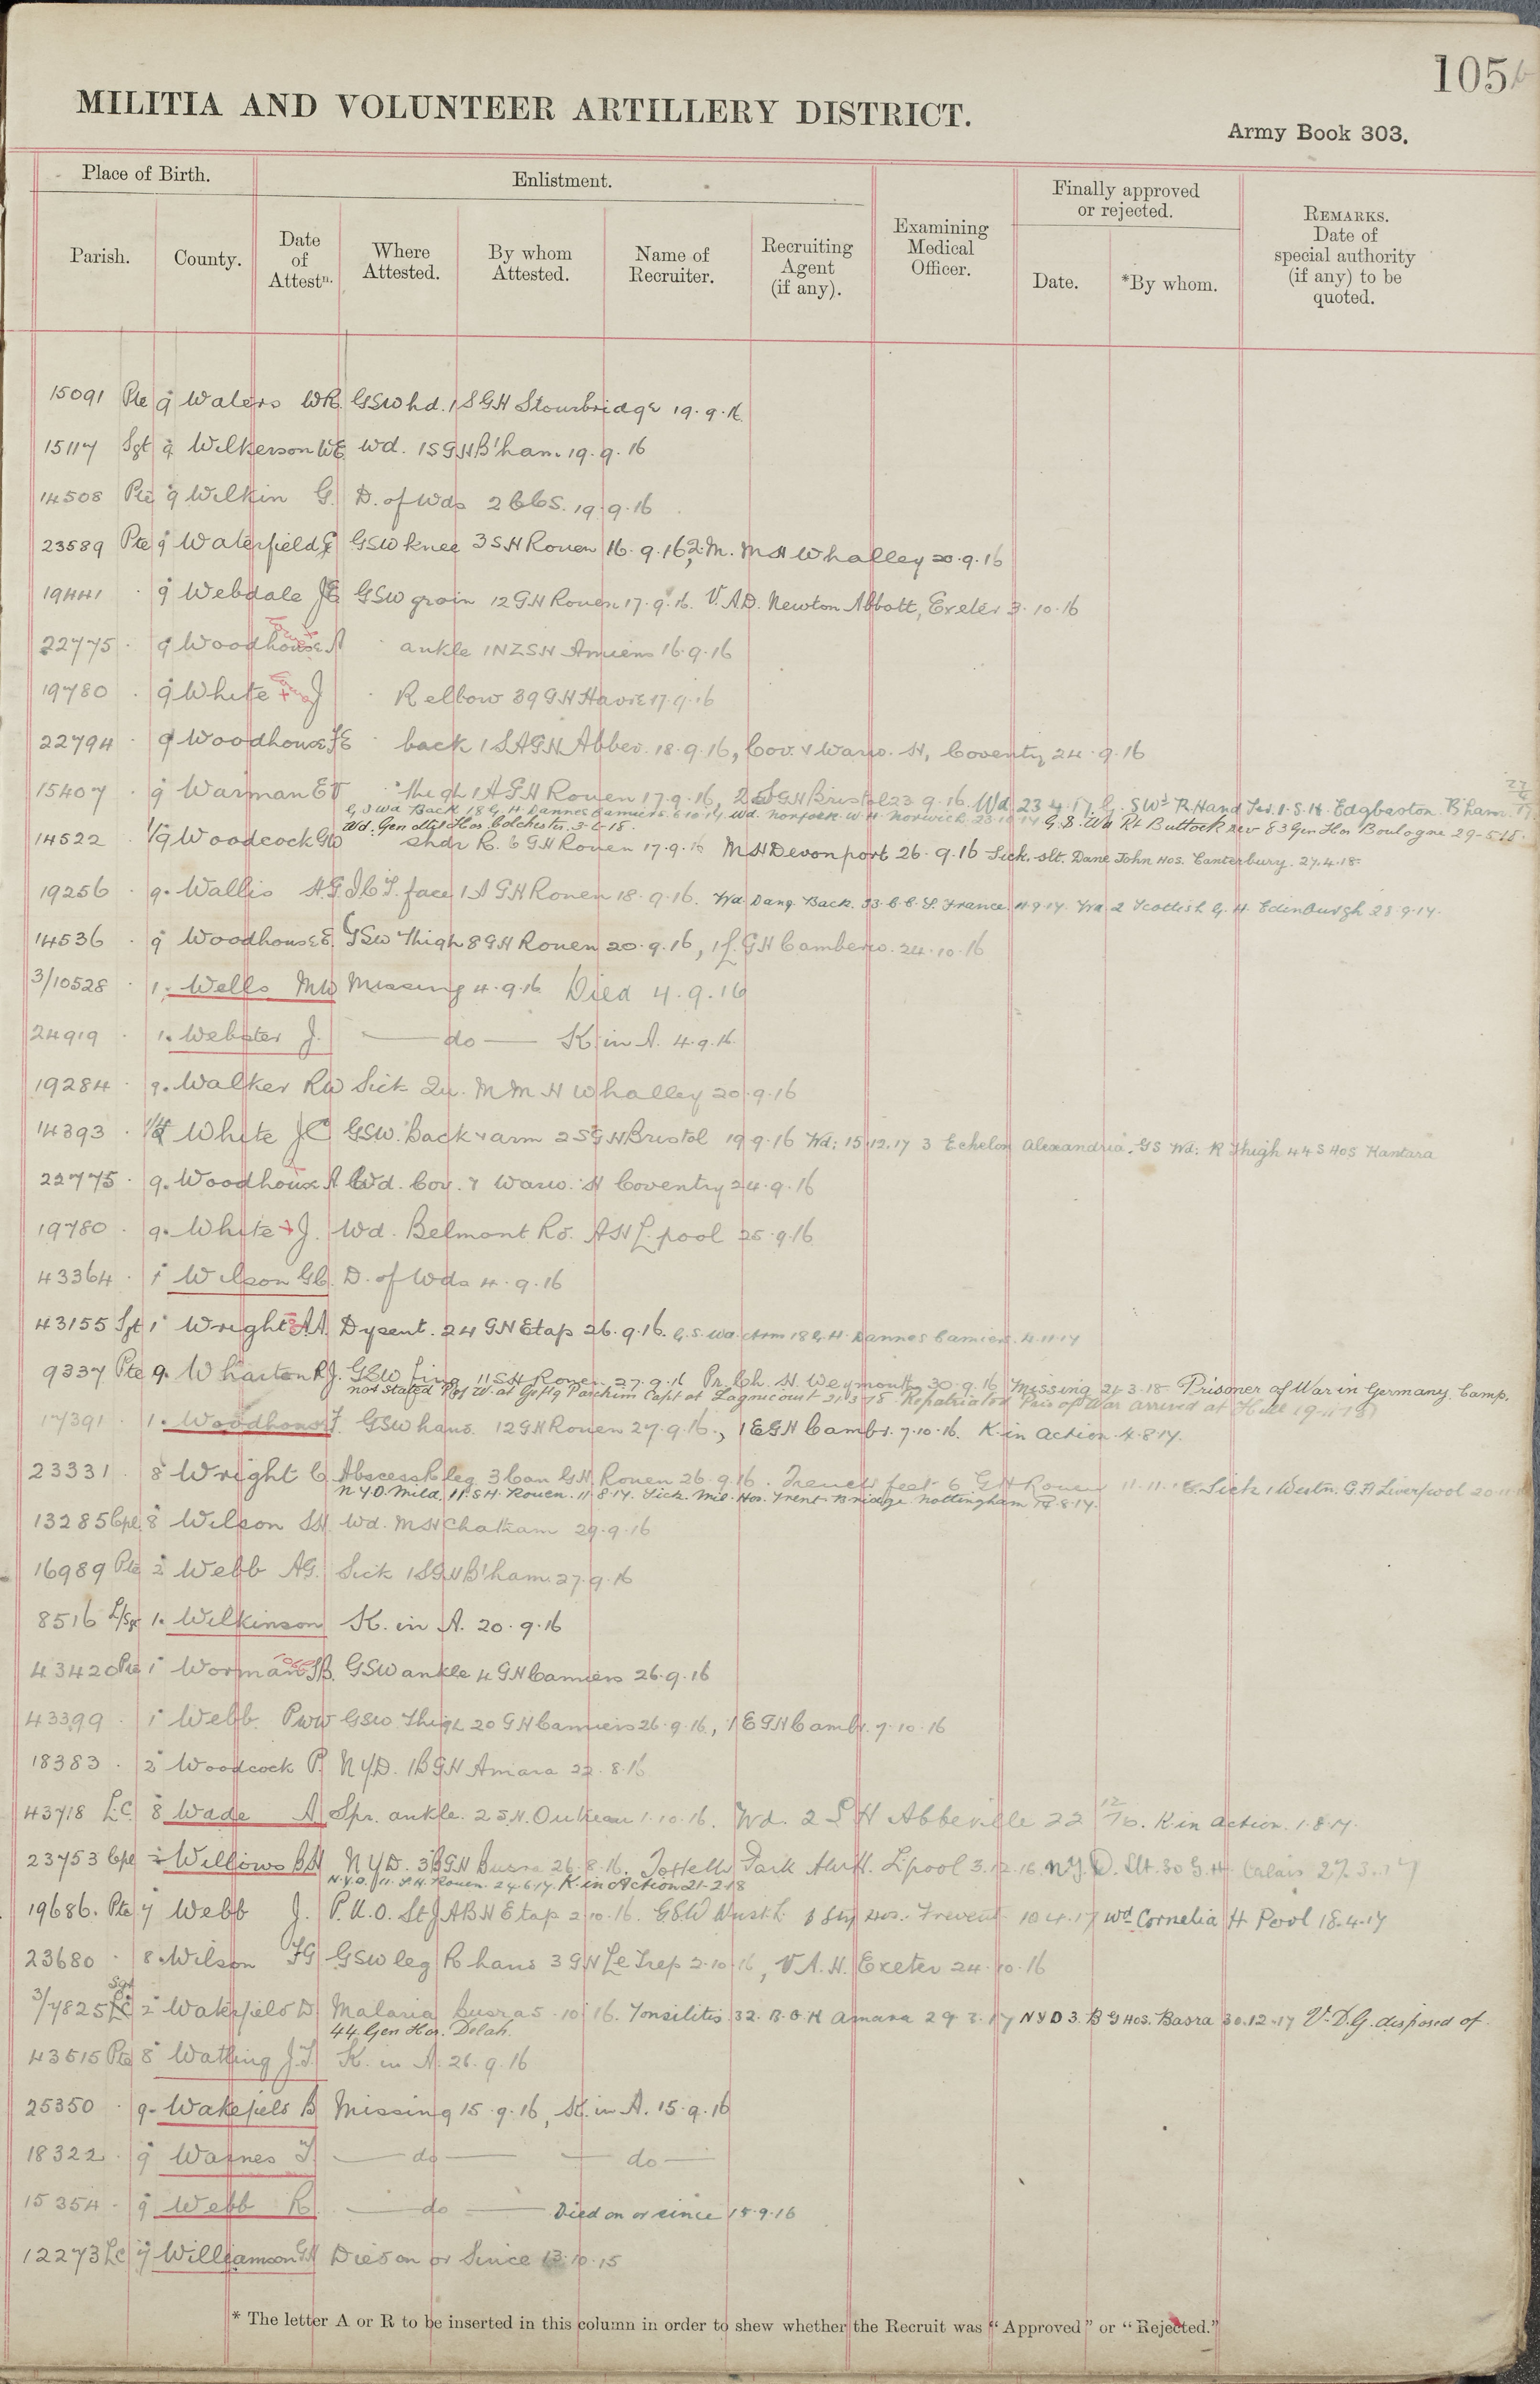 105
MILITIA AND VOLUNTEER ARTILLERY DISTRICT.
Army Book 303.
Place of Birth.
Enlistment.
Finally approved or rejected.
Parish.
County.
Date of Attestn.
Where Attested.
By whom Attested.
Name of Recruiter.
Recruiting Agent (if any).
Examining Medical Officer.
Date.
*By whom.
REMARKS. Date of special authority (if any) to be quoted.
15091 Pte 9 Waters WR. GSW hd. 1 SGH Stourbridge 19.9.16
15117 Sgt 9 Wilkerson WE Wd. 1SGH B'ham. 19.9.16
14508 Pte 9 Wilkin G. D. of Wds 2 CCS. 19.9.16
23589 Pte 9 Waterfield G GSW knee 3 SH Rouen 16.9.16, 2.M. MH Whalley 20.9.16
19441 . 9 Webdale JE GSW groin 12 GH Rouen 17.9.16. V.A.D. Newton Abbott, Exeter 3.10.16
22775 . 9 Woodhouse A . ankle 1NZSH Amiens 16.9.16
19780 . 9 White J . R elbow 39 GH Havre 17.9.16
22794 . 9 Woodhouse FE . back 1 SAGH Abbev. 18.9.16, Cov. & Warw. H, Coventry 24.9.16
15407 . 9 Warman ET . Thigh 1 AGH Rouen 17.9.16, 2 SGH Bristol 23.9.16. Wd 23.4.17 G.S Wd R Hand 1.S.H. Edgbaston. B'ham.
G.S Wd Back 18 G.H. Dannes Camiers 6.10.17 Wd. Norfolk W H Norwich 23.10.17 G.S. Wd Rt Buttock 83 Gen Hos Boulogne 29-5-18.
Wd. Gen Mil Hos. Colchester. 3-6-18.
14522 1/9 Woodcock GW Shdr R. 6 GH Rouen 17.9.16 MH Devonport 26.9.16 Sick. slt. Dane John Hos. Canterbury. 27.4.18.
19256 . 9. Wallis H.G. face 1 AGH Rouen 18.9.16. Wd Dang. Back. 33 C.C.S. France 11.9.17. Wd 2 Scottish G.H. Edinburgh 28.9.17.
14536 . 9 Woodhouse E. GSW Thigh 8 GH Rouen 20.9.16, 1 L. GH Camberw. 24.10.16
3/10528 . 1. Wells MW Missing 4.9.16 Died 4.9.16
24919 . 1. Webster J. — do — K. in A. 4.9.16.
19284 . 9. Walker RW Sick Qu. M M H Whalley 20.9.16
14393 . White JC GSW. Back & arm 2 SGH Bristol 19.9.16 Wd: 15.12.17 3 Echelon Alexandria. GS Wd: R Thigh 44 S Hos Kantara
22775 . 9. Woodhouse A Wd. Cov. & Warw. H Coventry 24.9.16
19780 . 9. White J. Wd. Belmont Rd. AH L.pool 25.9.16
43364 . 1 Wilson GC. D. of Wds 4.9.16
43155 Sgt 1 Wright AA. Dysent. 24 GH Etap 26.9.16. G.S. Wd. Arm 18 G.H. Dannes Camiers. 4.11.17
9337 Pte 9. Wharton RJ. GSW fing 11 SH Rouen 27.9.16 Pr. Ch. H. Weymouth 30.9.16 Missing 21.3.18 Prisoner of War in Germany. Camp.
not stated P of W. at Parchim Capt. at Lagnicourt 21.3.18. Repatriated Pris of War arrived at Hull 19-11-18
17391 . 1. Woodhouse F. GSW hand. 12 GH Rouen 27.9.16., 1 EGH Cambr. 7.10.16. K in Action 4.8.17.
23331 . 8 Wright C Abscess R leg. 3 Can GH Rouen 26.9.16. Trench feet 6 GH Rouen 11.11.16. Sick 1 Westn. G.H Liverpool 20.11.16
N.Y.D. Mild. 11 S.H. Rouen. 11.8.17. Sick. Mil. Hos. Trent Bridge. Nottingham 18.8.17.
13285 Cpl 8 Wilson SH. Wd. MH Chatham 29.9.16
16989 Pte 2 Webb AG. Sick 1SGH B'ham. 27.9.16
8516 L/Sgt 1. Wilkinson K. in A. 20.9.16
43420 Pte 1 Worman GSW ankle 4 GH Camiers 26.9.16
43399 . 1 Webb. PWW GSW Thigh 20 GH Camiers 26.9.16, 1 EGH Cambr. 7.10.16
18383 . 2 Woodcock P. NYD. 1BGH Amara 22.8.16
43718 L.C. 8 Wade A Spr. ankle. 2 S.H. 1.10.16. Wd. 2 S H Abbeville 22 12/16. K in action. 1.8.17.
23753 Cpl 2 Willows BH NYD. 3BGH Busra 26.8.16. Park Aux H. L'pool 3.12.16. N.Y.D. Slt. 30 G.H. Calais 27.3.17
N.Y.D. 11. S.H. Rouen. 24.6.17. K. in Action 21-2-18
19686. Pte 7 Webb J. P.U.O. St J ABH Etap 2.10.16. GSW Wrist L 6 Sty Hos. Frevent 10.4.17 Wd Cornelia H Pool 18.4.17
23680 . 8. Wilson FG GSW leg R hand 3 GH Le Trep 2.10.16, V.A.H. Exeter 24.10.16
3/7825 LC Sgt 2 Wakefield D Malaria Busra 5.10.16. Tonsilitis 32. B.G.H Amara 29.3.17 NYD 3. B G Hos. Basra 30.12.17 V.D.G. disposed of
44. Gen Hos. Delah.
43515 Pte 8 Watling J.T. K. in A. 26.9.16
25350 . 9. Wakefield B Missing 15.9.16, K. in A. 15.9.16
18322 . 9 Warnes T. — do — — do —
15354 . 9 Webb R. — do — Died on or since 15.9.16
12273 LC 7 Williamson GH Died on or Since 13.10.15
* The letter A or R to be inserted in this column in order to shew whether the Recruit was "Approved" or "Rejected."